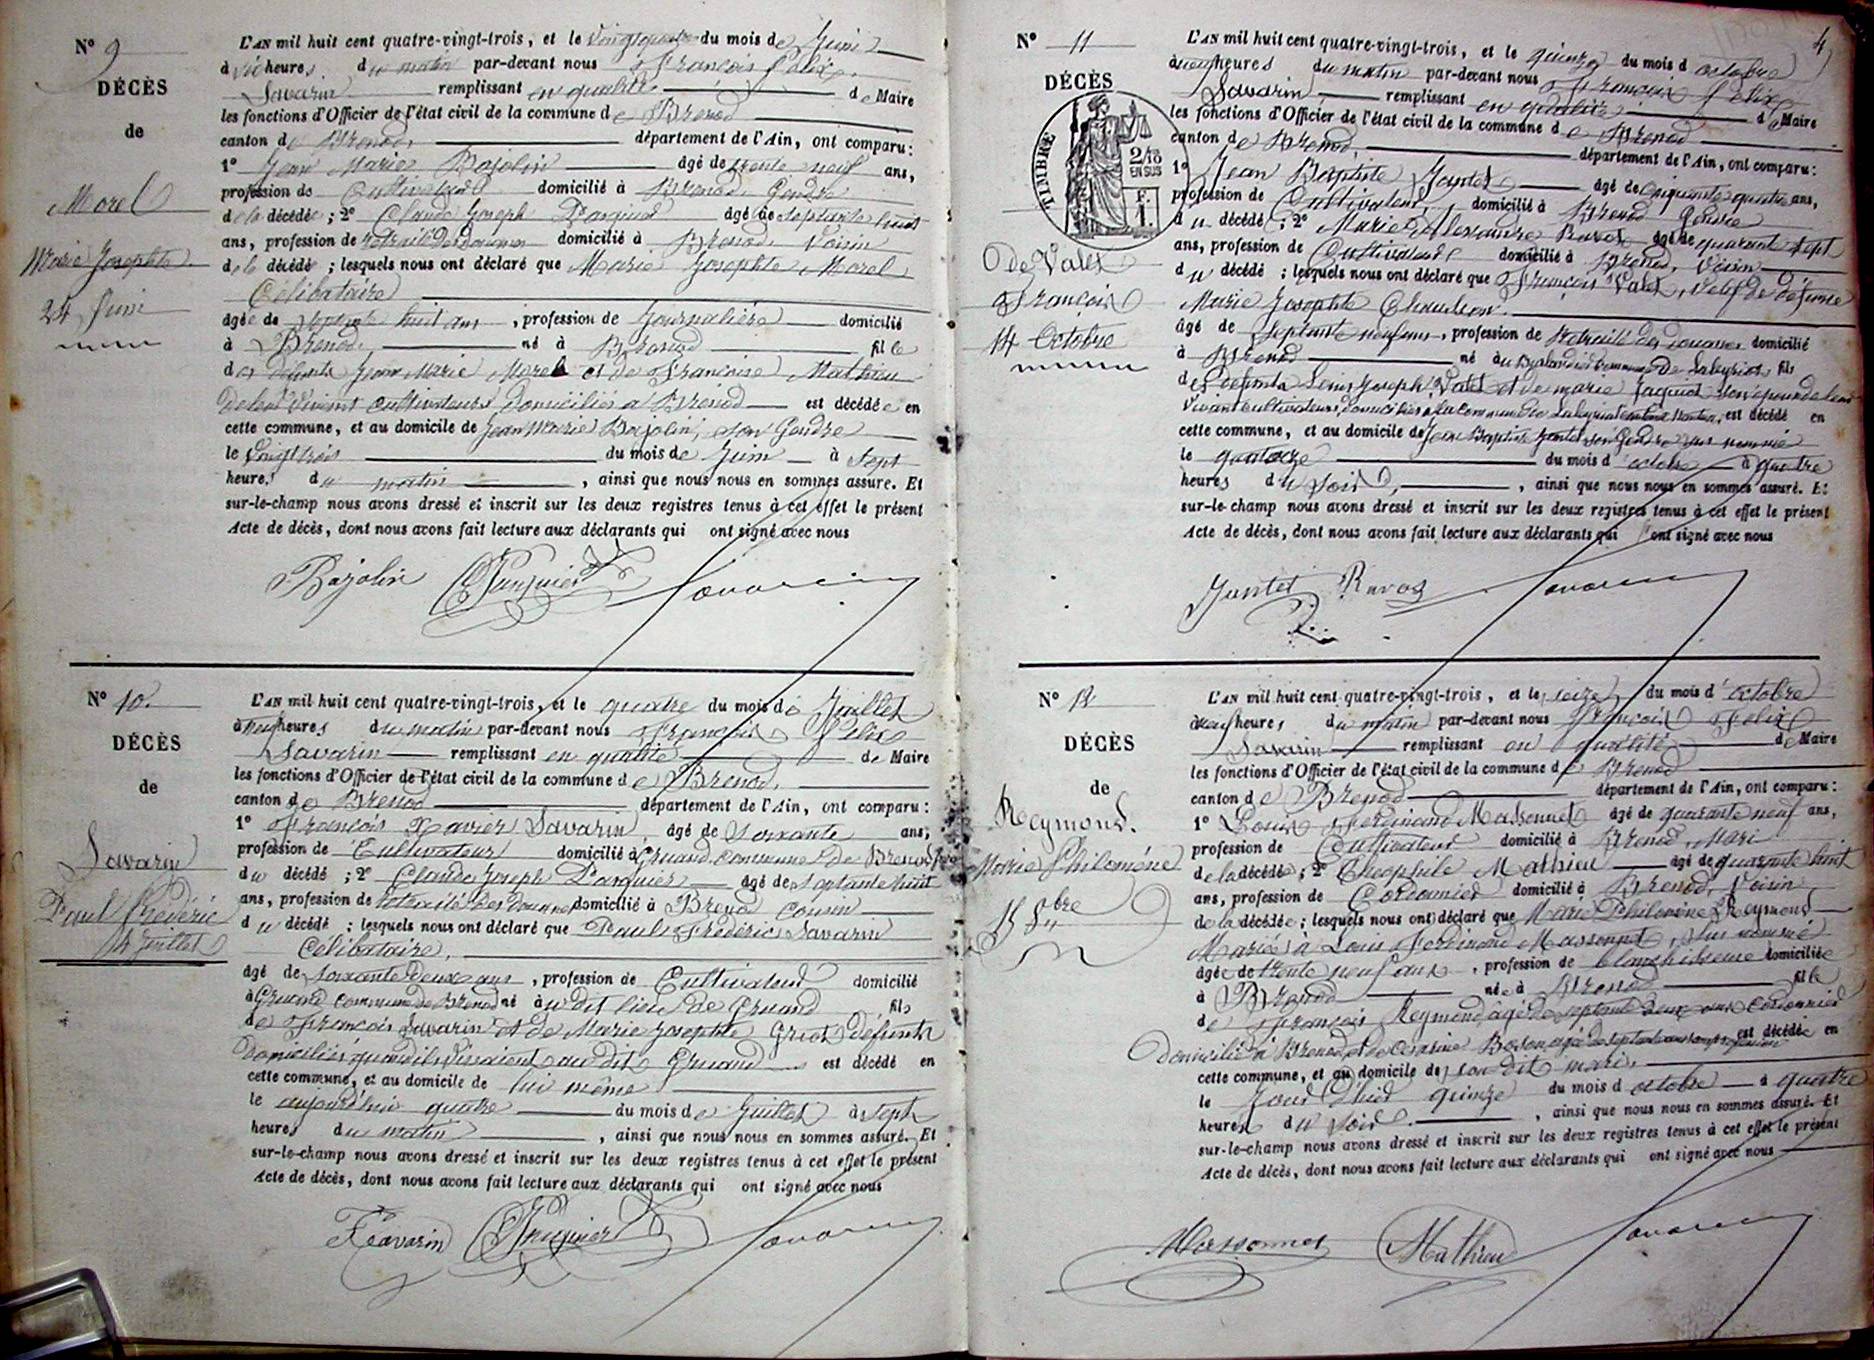 N° 9
DÉCÈS
de
Morel
Marie Josephte
24 Juin
L'AN mil huit cent quatre-vingt-trois, et le vingt quatre du mois de Juin
à six heures du matin par-devant nous François Félix
Savarin remplissant en qualité de Maire
les fonctions d'Officier de l'état civil de la commune de Brenod
canton de Brenod département de l'Ain, ont comparu :
1° Jean Marie Bajolin âgé de trente neuf ans,
profession de Cultivateur domicilié à Brenod Gendre
de la décédée ; 2° Claude Joseph Parquier âgé de septante huit
ans, profession de retraité des douanes domicilié à Brenod, Voisin
de la décédée ; lesquels nous ont déclaré que Marie Josephte Morel
Célibataire
âgée de septante huit ans, profession de Journalière domicilié
à Brenod né à Brenod fille
des défunts Jean Marie Morel et de Françoise Mathieu
de leur vivant cultivateurs domiciliés à Brenod est décédée en
cette commune, et au domicile de Jean Marie Bajolin, son Gendre
le vingt trois du mois de Juin à sept
heures du matin, ainsi que nous nous en sommes assuré. Et
sur-le-champ nous avons dressé et inscrit sur les deux registres tenus à cet effet le présent
Acte de décès, dont nous avons fait lecture aux déclarants qui ont signé avec nous
Bajolin Parquier Savarin
N° 10
DÉCÈS
de
Savarin
Paul Frédéric
4 Juillet
L'AN mil huit cent quatre-vingt-trois, et le quatre du mois de Juillet
à neuf heures du matin par-devant nous François Félix
Savarin remplissant en qualité de Maire
les fonctions d'Officier de l'état civil de la commune de Brenod,
canton de Brenod département de l'Ain, ont comparu :
1° François Xavier Savarin âgé de soixante ans,
profession de Cultivateur domicilié à Gruand commune de Brenod
du décédé ; 2° Claude Joseph Parquier âgé de septante huit
ans, profession de retraité des douanes domicilié à Brenod Cousin
du décédé ; lesquels nous ont déclaré que Paul Frédéric Savarin
Célibataire,
âgé de soixante deux ans, profession de Cultivateur domicilié
à Gruand commune de Brenod né au dit lieu de Gruand fils
de François Savarin et de Marie Josephte Griot défunts
domiciliés quand ils vivaient au dit Gruand est décédé en
cette commune, et au domicile de lui même
le aujourd'hui quatre du mois de Juillet à sept
heures du matin, ainsi que nous nous en sommes assuré. Et
sur-le-champ nous avons dressé et inscrit sur les deux registres tenus à cet effet le présent
Acte de décès, dont nous avons fait lecture aux déclarants qui ont signé avec nous
F Savarin Parquier Savarin
4
N° 11
DÉCÈS
TIMBRE
2/10
EN SUS
F.
1
de Valet
François
14 Octobre
L'AN mil huit cent quatre-vingt-trois, et le quinze du mois d'octobre
à neuf heures du matin par-devant nous François Félix
Savarin remplissant en qualité de Maire
les fonctions d'Officier de l'état civil de la commune de Brenod
canton de Brenod, département de l'Ain, ont comparu :
1° Jean Baptiste Jantet âgé de cinquante quatre ans,
profession de Cultivateur domicilié à Brenod Gendre
du décédé ; 2° Marie Alexandre Ravoz âgé de quarante sept
ans, profession de Cultivateur domicilié à Brenod, Voisin
du décédé ; lesquels nous ont déclaré que François Valet, veuf de défunte
Marie Josephte Chaudeon
âgé de septante neuf ans, profession de Retraité des douanes domicilié
à Brenod né fils
des défunts Louis Joseph Valet et de marie Jaquiot son épouse de leur
vivant cultivateurs domiciliés à la commune est décédé en
cette commune, et au domicile de Jean Baptiste Jantet son Gendre sus nommé
le quatorze du mois d'octobre à quatre
heures du soir, ainsi que nous nous en sommes assuré. Et
sur-le-champ nous avons dressé et inscrit sur les deux registres tenus à cet effet le présent
Acte de décès, dont nous avons fait lecture aux déclarants qui ont signé avec nous
Jantet Ravoz Savarin
N° 12
DÉCÈS
de
Reymond.
Marie Philomène
15 8bre
L'AN mil huit cent quatre-vingt-trois, et le seize du mois d'octobre
à neuf heures du matin par-devant nous François Félix
Savarin remplissant en qualité de Maire
les fonctions d'Officier de l'état civil de la commune de Brenod
canton de Brenod département de l'Ain, ont comparu :
1° Louis Ferdinand Massonnet âgé de quarante neuf ans,
profession de Cultivateur domicilié à Brenod, Mari
de la décédée ; 2° Théophile Mathieu âgé de quarante huit
ans, profession de Cordonnier domicilié à Brenod, Voisin
de la décédée ; lesquels nous ont déclaré que Marie Philomène Reymond
Mariée à Louis Ferdinand Massonnet, sus nommé
âgée de trente neuf ans, profession de blanchisseuse domiciliée
à Brenod née à Brenod fille
de François Reymond âgé de septante deux ans cordonnier
domicilié à Brenod, et de est décédée en
cette commune, et au domicile de son dit mari,
le Jour d'hier quinze du mois d'octobre à quatre
heures du soir, ainsi que nous nous en sommes assuré. Et
sur-le-champ nous avons dressé et inscrit sur les deux registres tenus à cet effet le présent
Acte de décès, dont nous avons fait lecture aux déclarants qui ont signé avec nous
Massonnet Mathieu Savarin